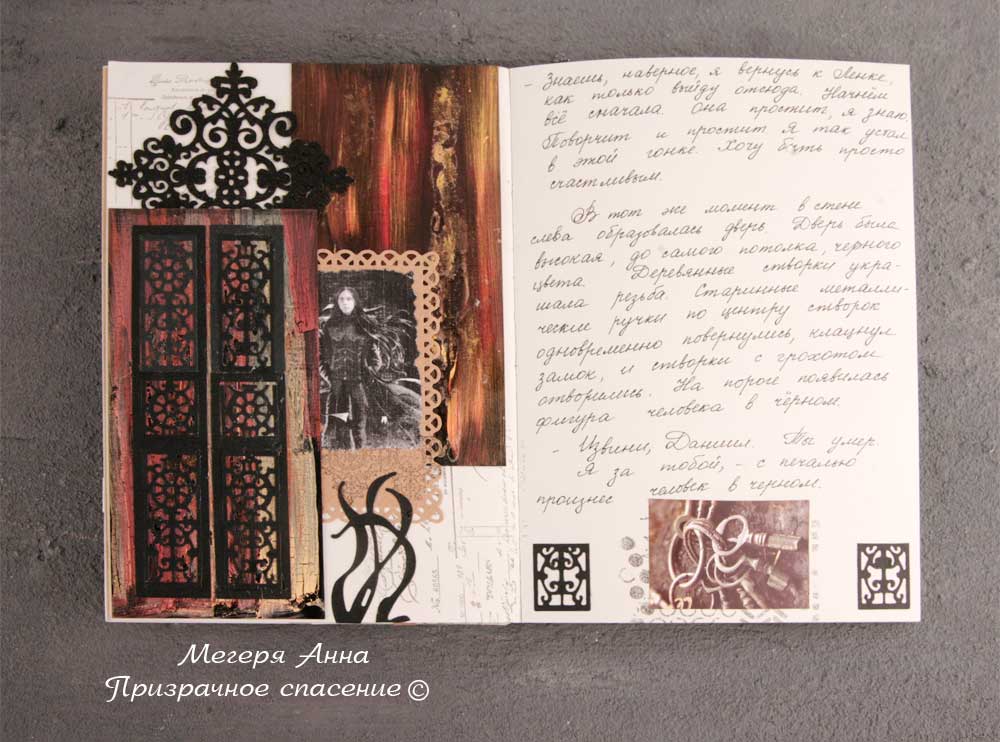 - Знаешь, наверное, я вернусь к Ленке,
как только выйду отсюда. Начнём
всё сначала. Она простит, я знаю.
Поворчит и простит Я так устал
в этой гонке. Хочу быть просто
счастливым.
В тот же момент в стене
слева образовалась дверь. Дверь была
высокая, до самого потолка, черного
цвета. Деревянные створки укра-
шала резьба. Старинные металли-
ческие ручки по центру створок
одновременно повернулись, клацнул
замок, и створки с грохотом
отворились. На пороге появилась
фигура человека в чёрном.
- Извини, Даниил. Ты умер.
Я за тобой, - с печалью
произнес человек в черном.
Мегеря Анна
Призрачное спасение ©